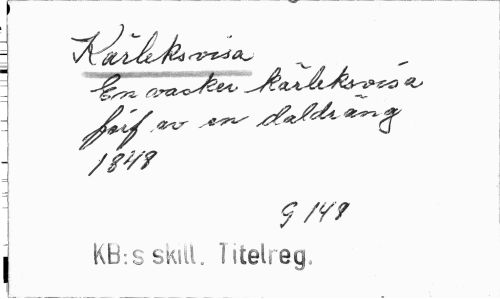 Kärleksvisa
En vacker kärleksvisa
förf av en daldräng
1848
G 148
KB:s skill. Titelreg.